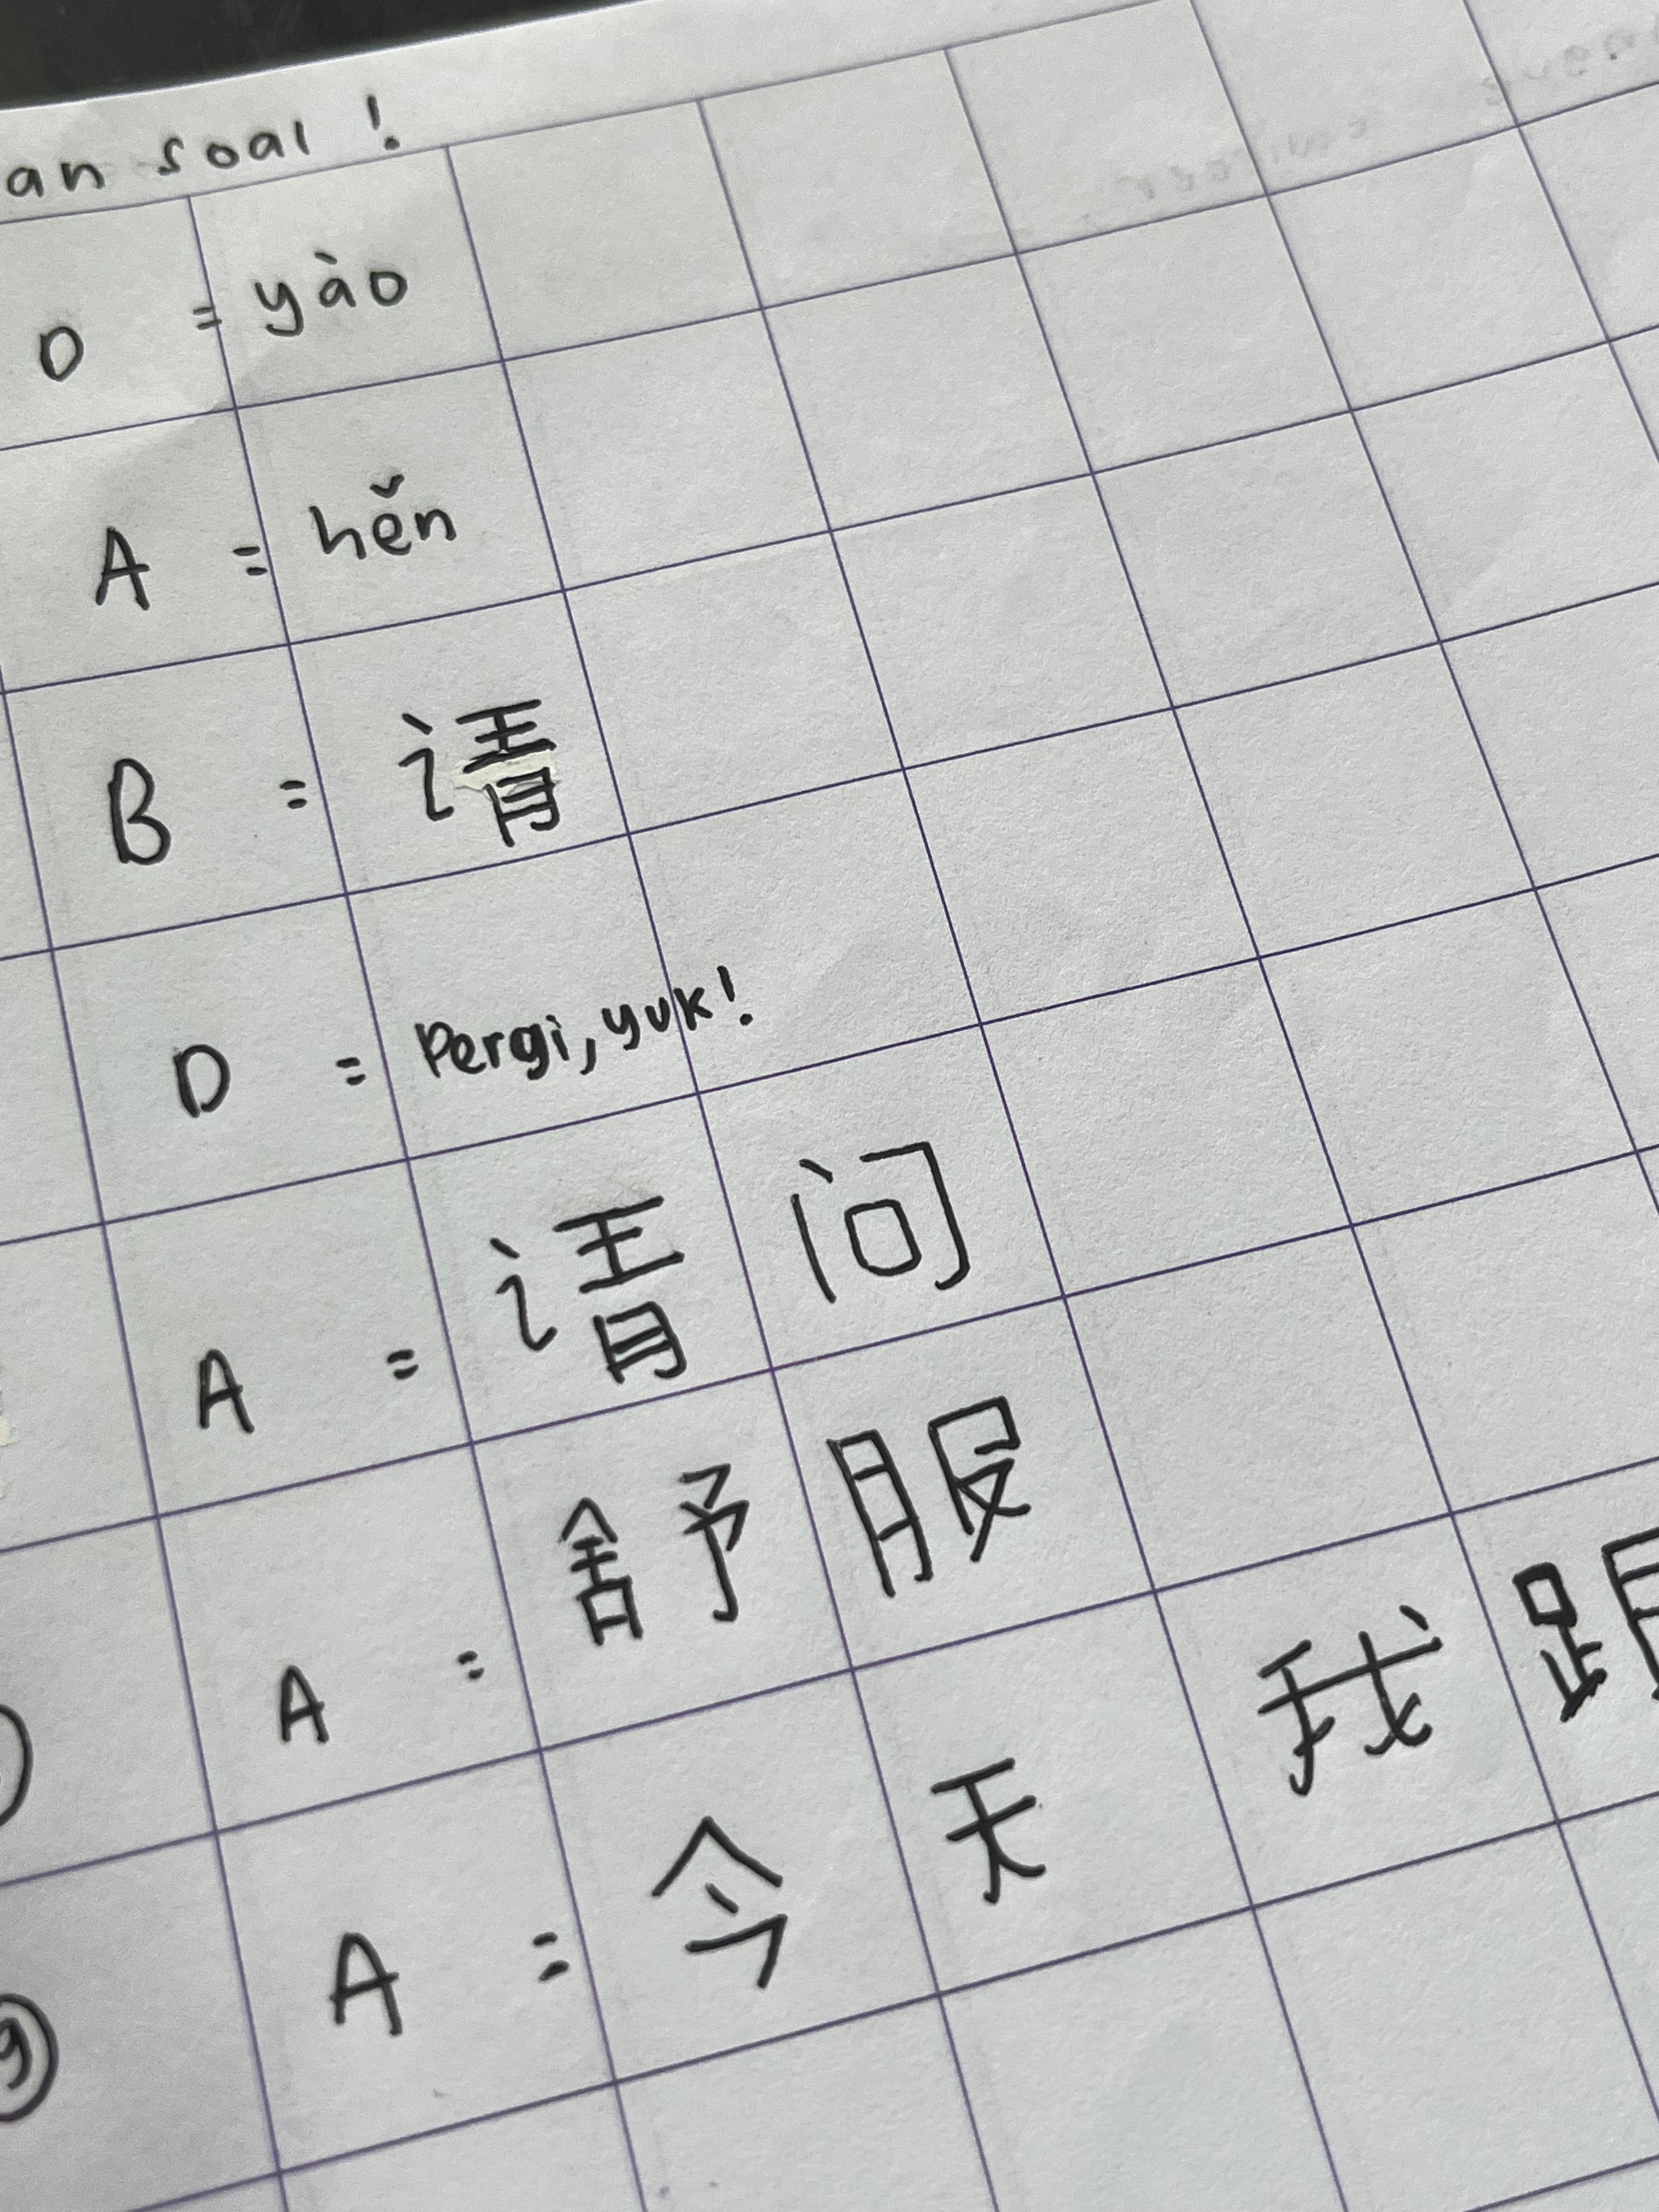 an soal !
D = yào
A = hěn
B = 请
D = Pergi, yuk!
A = 请问
A = 舒服
A = 今天我跟
9